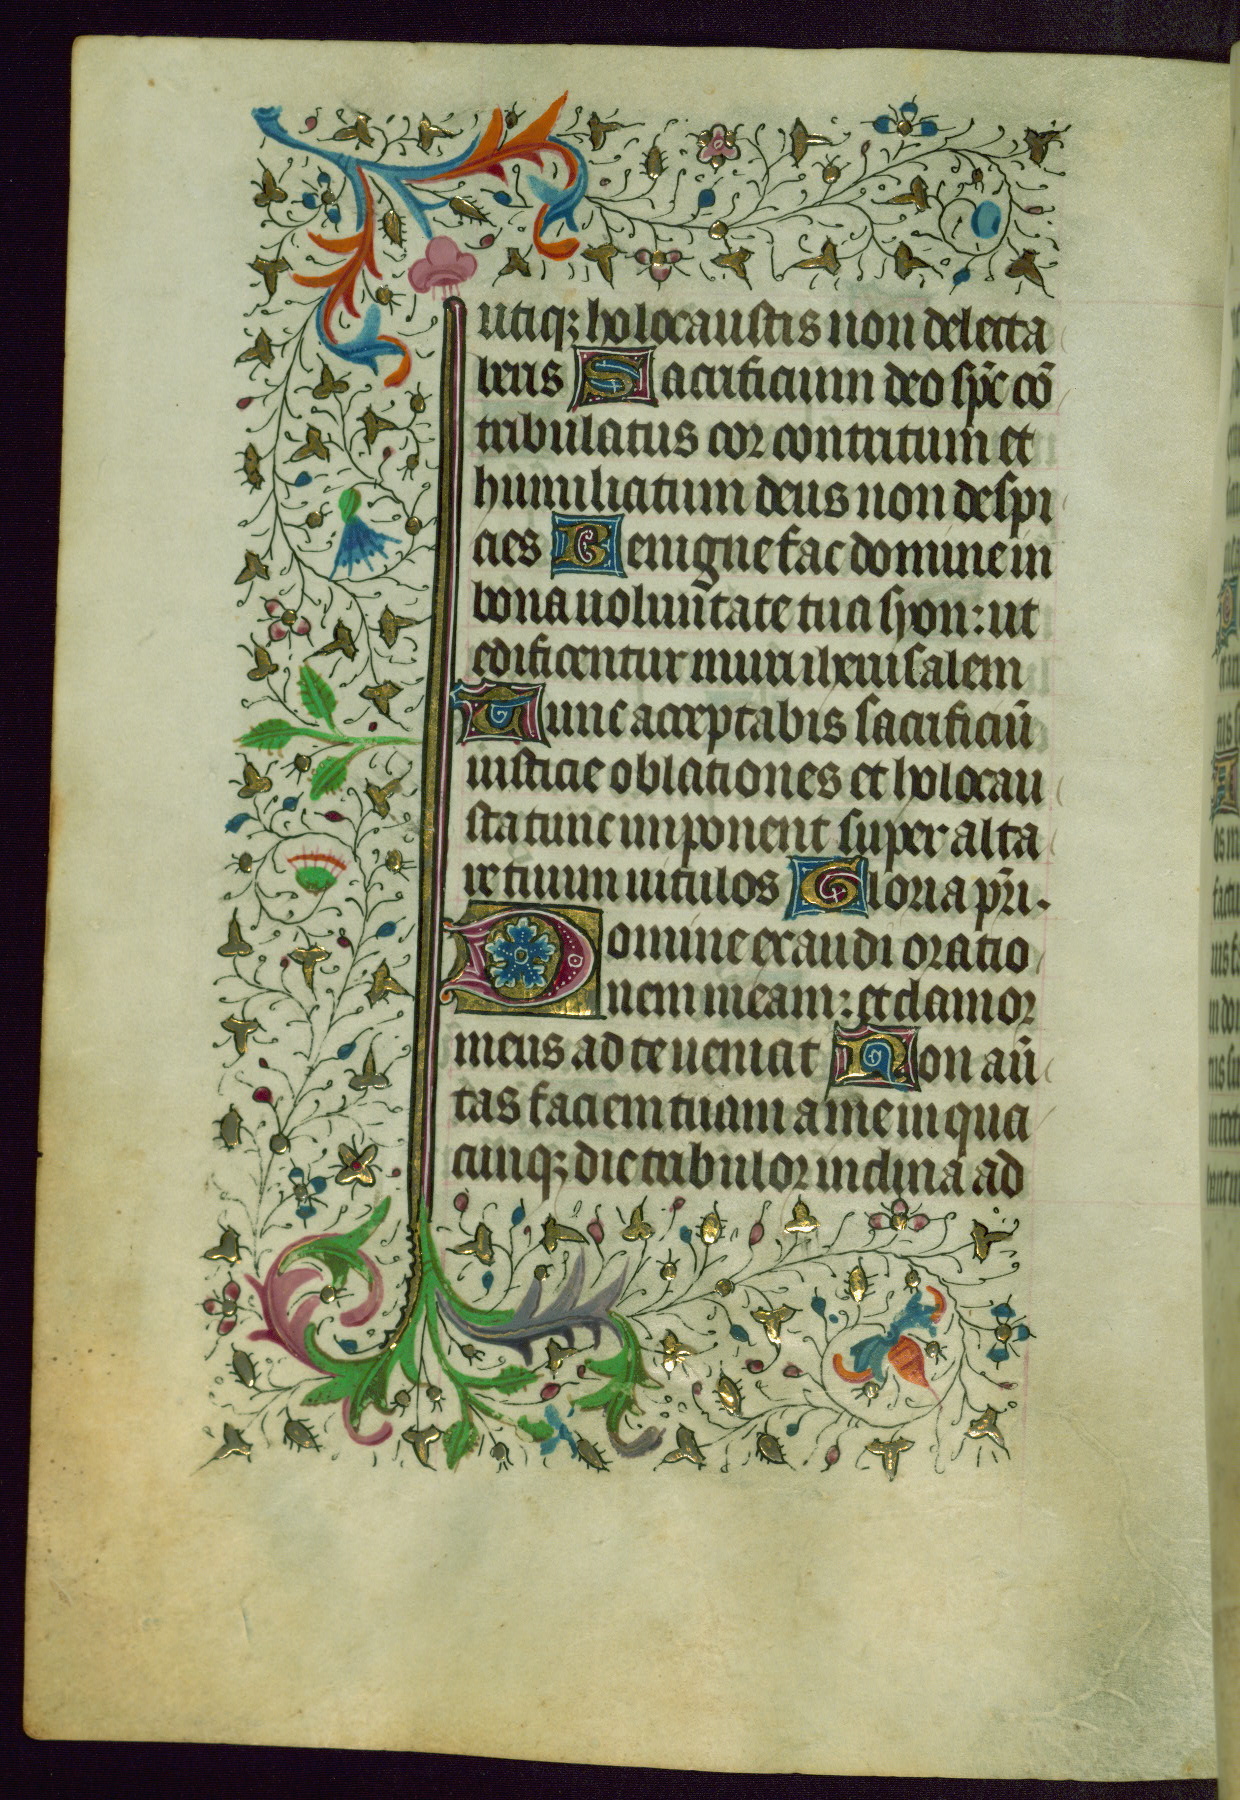 utiqꝫ holocaustis non delecta
beris Sacrificium deo sp̅c co̅
tribulatus cor contritum et
humiliatum deus non despi
cies Benigne fac domine in
bona volun̅tate tua syon: ut
edificentur muri iherusalem
Tunc acceptabis sacrificiu̅
iusticie oblationes et holocau
sta tunc imponent super alta
re tuum vitulos Gloria pr̅i.
Domine exaudi oratio
nem meam: et clamor
meus ad te veniat Non au̅
tas faciem tuam a me in qua
cunqꝫ die tribulor inclina ad